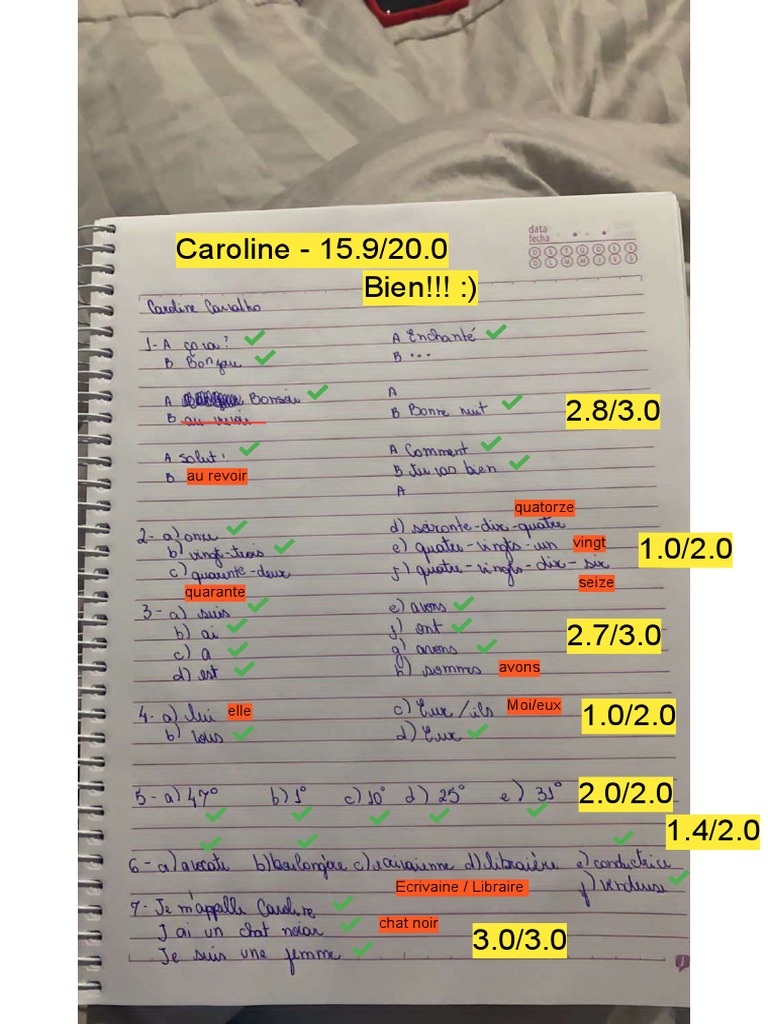 Caroline - 15.9/20.0
Bien!!! :)
data
fecha
D S T Q Q S S
D L M M J V S
Caroline Carvalho
1- A ça va? A Enchanté
B Bonjour B ...
A Bonsoir A
B au revoir B Bonne nuit 2.8/3.0
A Salut! A Comment
B au revoir B Tu vas bien
A
quatorze
2- a) onze d) soixante-dix-quatre
b) vingt-trois e) quatre-vingts-un vingt 1.0/2.0
c) quarente-deux f) quatre-vingts-dix-six
quarante seize
3- a) suis e) avons
b) ai f) ont
c) a g) avons 2.7/3.0
d) est h) sommes avons
4- a) lui elle c) Eux/ils Moi/eux 1.0/2.0
b) vous d) Eux
5- a) 47º b) 1º c) 10º d) 25º e) 31º 2.0/2.0
1.4/2.0
6- a) avocate b) boulongère c) écrivaienne d) libraière e) conductrice
Ecrivaine / Libraire f) vendeuse
7- Je m'appelle Caroline
J'ai un chat noiar chat noir
Je suis une femme 3.0/3.0